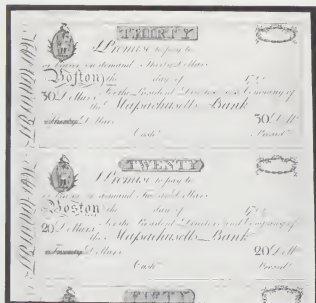 THIRTY
I Promise to pay to
or bearer on demand Thirty Dollars
Boston the day of 17
30 Dollars For the President Directors and Company of
the Massachusetts Bank
Dollars 30 Doll
Cash Presid
TWENTY
I Promise to pay to
or bearer on demand Dollars
Boston the day of 17
20 Dollars For the President Directors and Company of
the Massachusetts Bank
Dollars 20 Doll
Cash Presid
FIFTY